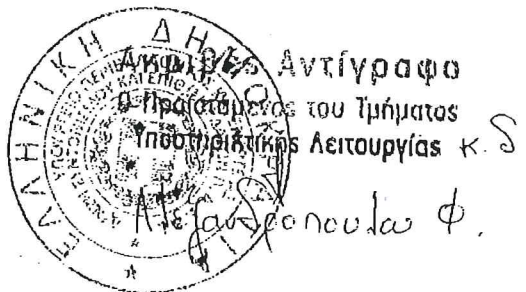 ΕΛΛΗΝΙΚΗ ΔΗΜΟΚΡΑΤΙΑ
Ακριβές Αντίγραφο
Ο Προϊστάμενος του Τμήματος
Υποστηρικτικής Λειτουργίας κ. δ
Αλεξανδροπούλου Φ.